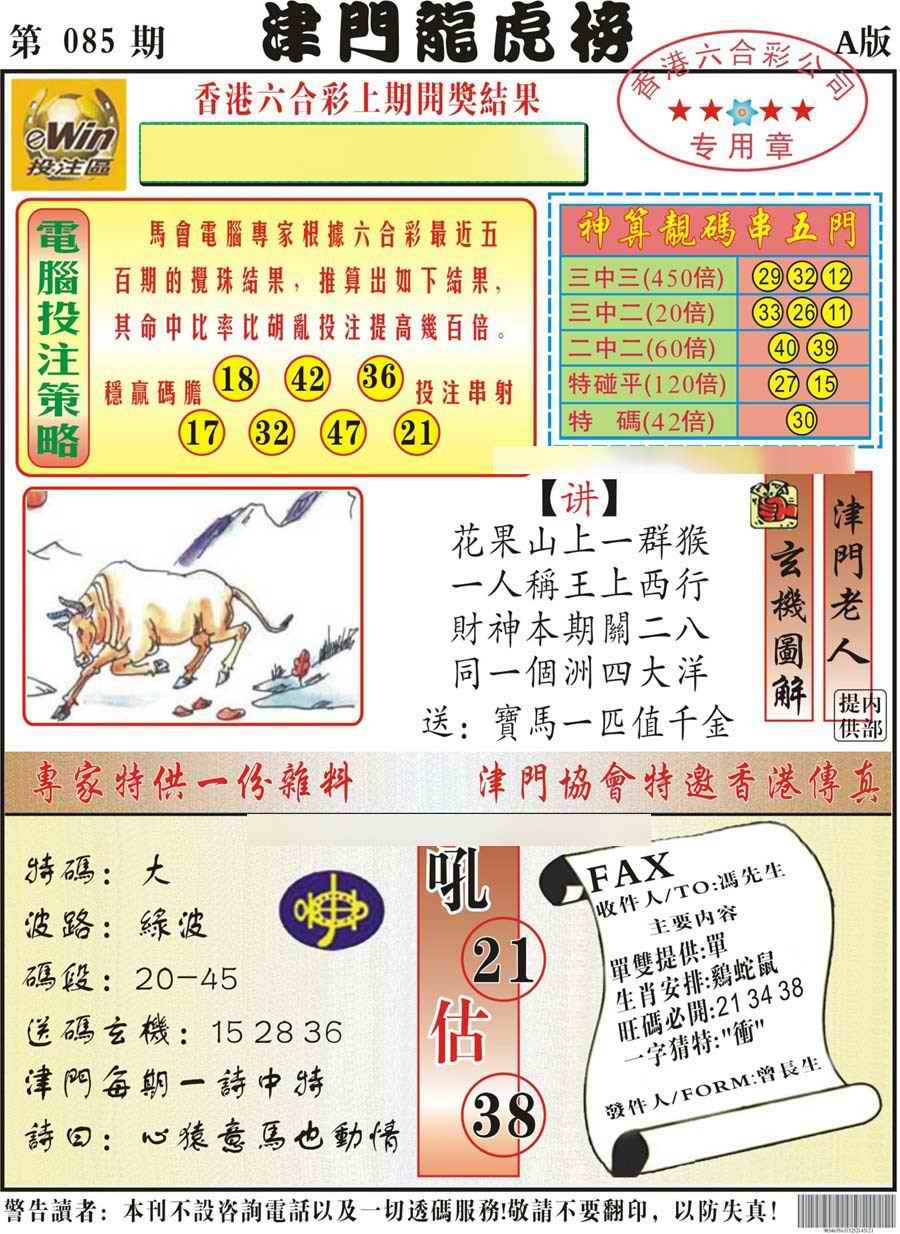 第 085 期
津門龍虎榜
A版
香港六合彩公司
专用章
eWin
投注區
香港六合彩上期開獎結果
電腦投注策略
馬會電腦專家根據六合彩最近五
百期的攪珠結果，推算出如下結果，
其命中比率比胡亂投注提高幾百倍。
穩贏碼膽 18 42 36 投注串射
17 32 47 21
神算靚碼串五門
三中三(450倍) 29 32 12
三中二(20倍) 33 26 11
二中二(60倍) 40 39
特碰平(120倍) 27 15
特 碼(42倍) 30
【讲】
花果山上一群猴
一人稱王上西行
財神本期關二八
同一個洲四大洋
送：寶馬一匹值千金
玄機圖解
津門老人
內部提供
專家特供一份雜料
津門協會特邀香港傳真
特碼：大
波路：綠波
碼段：20-45
送碼玄機：15 28 36
津門每期一詩中特
詩曰：心猿意馬也動情
吼
21
估
38
FAX
收件人/TO:馮先生
主要内容
單雙提供:單
生肖安排:鷄蛇鼠
旺碼必開:21 34 38
一字猜特:"衝"
發件人/FORM:曾長生
警告讀者：本刊不設咨詢電話以及一切透碼服務!敬請不要翻印，以防失真！